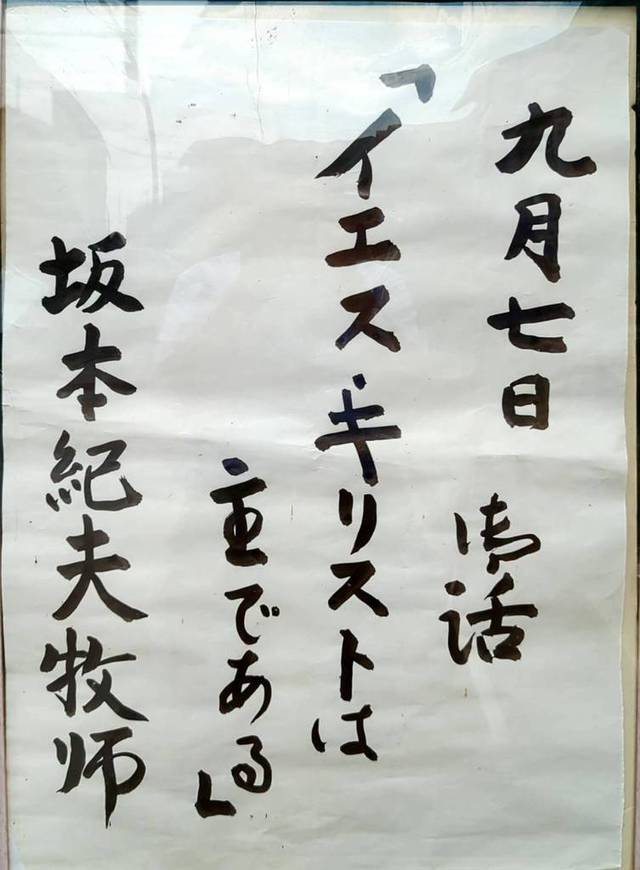 九月七日
御話
「イエス・キリストは
主である」
坂本紀夫牧師